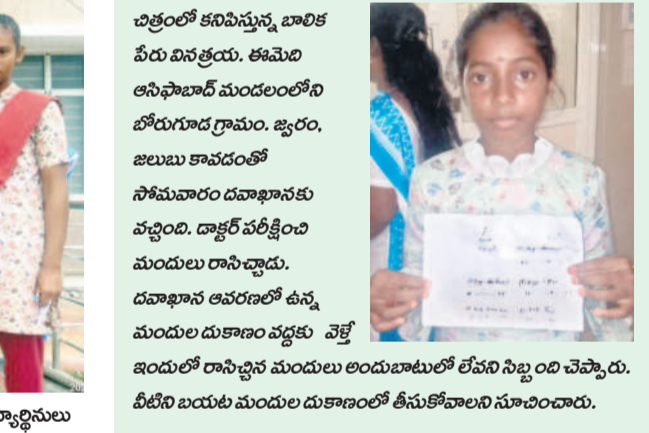 చిత్రంలో కనిపిస్తున్న బాలిక
పేరు వినత్రయ. ఈమెది
ఆసిఫాబాద్ మండలంలోని
బోరుగూడ గ్రామం. జ్వరం,
జలుబు కావడంతో
సోమవారం దవాఖానకు
వచ్చింది. డాక్టర్ పరీక్షించి
మందులు రాసిచ్చాడు.
దవాఖాన ఆవరణలో ఉన్న
మందుల దుకాణం వద్దకు వెళ్తే
ఇందులో రాసిచ్చిన మందులు అందుబాటులో లేవని సిబ్బంది చెప్పారు.
వీటిని బయట మందుల దుకాణంలో తీసుకోవాలని సూచించారు.